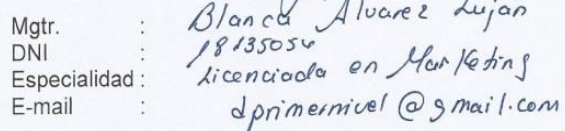 Mgtr. : Blanca Alvarez Lujan
DNI : 18135056
Especialidad : Licenciada en Marketing
E-mail : dprimernivel@gmail.com